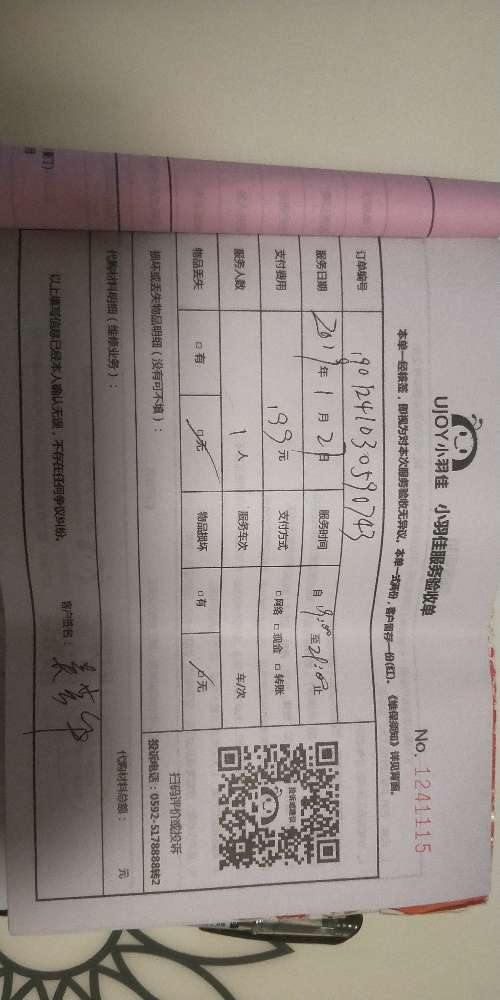 UJOY小羽佳 小羽佳服务验收单
No. 1241115
本单一经接签,即视为对本次服务验收无异议。本单一式两份,客户留存一份(红)。《维保须知》详见背面。
订单编号 1901241030590743
服务日期 2019年1月27日 服务时间 自 至21:00止
支付费用 199元 支付方式 □网络 □现金 □转账
服务人数 1人 服务车次 车/次
物品丢失 □有 □无 物品损坏 □有 □无
损坏或丢失物品明细(没有可不填):
投诉建议
扫码评价或投诉
投诉电话:0592-5178888转2
代购材料明细(维修业务):
代购材料总额: 元
以上填写信息已经本人确认无误,不存在任何争议纠纷。
客户签名: